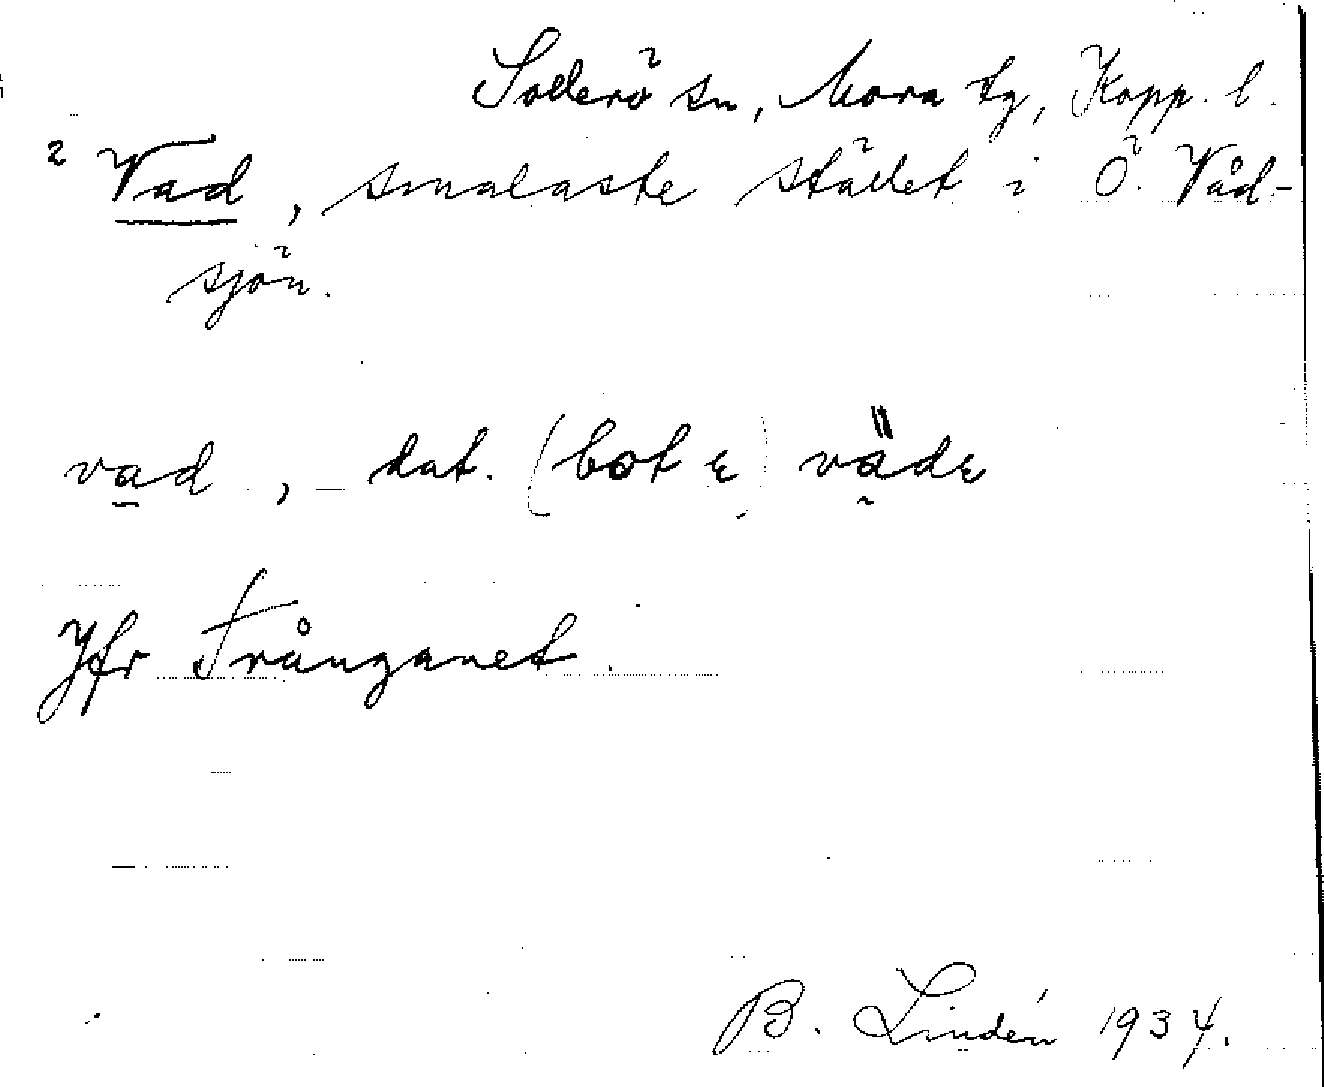 Sollerö sn, Mora tg, Kopp. l.
2 Vad, smalaste stället i Ö. Våd-
sjön.
vad, dat. (bot ε) vädε
Jfr Trånganet.
B. Lindén 1934.